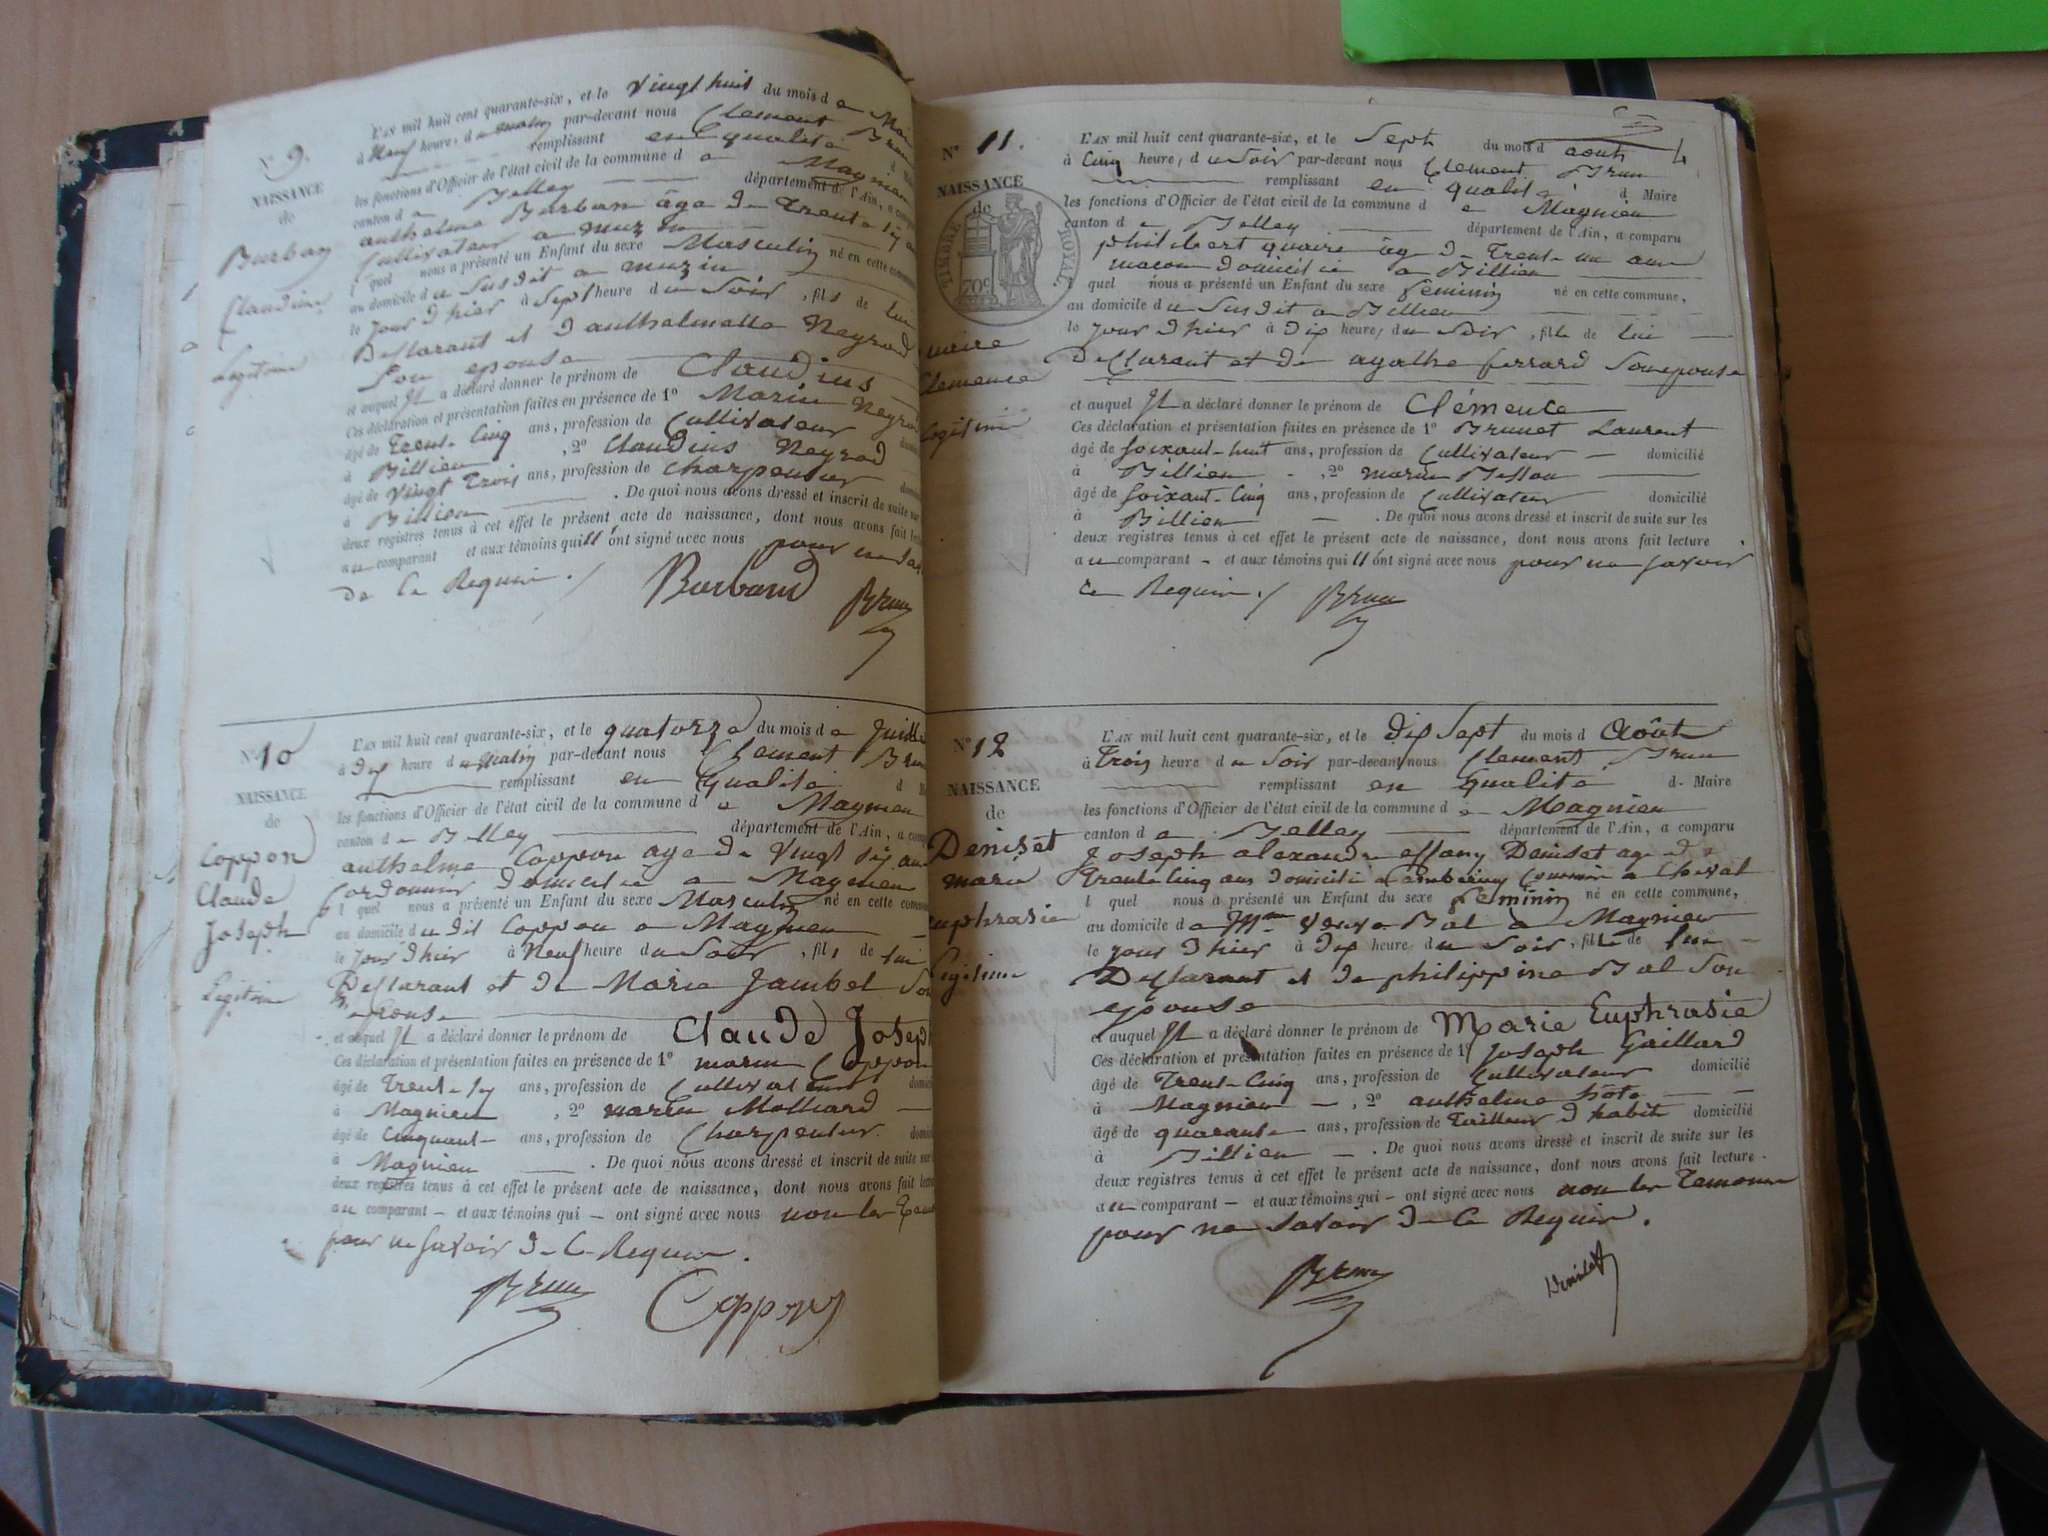 N° 9.
NAISSANCE
de
Barban
Claudius
Légitime
L'AN mil huit cent quarante-six, et le Vingt huit du mois d e Mai
à Neuf heure, d u matin par-devant nous Clement Brun
remplissant en qualité d
les fonctions d'Officier de l'état civil de la commune d e Magnieu
canton d e Belley département de l'Ain, a comparu
anthelme Barban âgé de Trente six
Cultivateur a muzin
l quel nous a présenté un Enfant du sexe Masculin né en cette commune
au domicile d u Susdit a muzin
le jour d'hier à Sept heure d u Soir, fils de lui
Declarant et d'anthelmette Neyrod
Son epouse
et auquel Il a déclaré donner le prénom de Claudius
Ces déclaration et présentation faites en présence de 1° Marin Neyrod
âgé de Trente Cinq ans, profession de Cultivateur
à Billieu, 2° Claudius Neyrod
âgé de Vingt Trois ans, profession de charpentier
à Billieu. De quoi nous avons dressé et inscrit de suite sur
deux registres tenus à cet effet le présent acte de naissance, dont nous avons fait
au comparant et aux témoins qui ont signé avec nous pour ne
de ce Requis ./
Barband Brun
N° 10
NAISSANCE
de
Coppon
Claude
Joseph
Légitime
L'AN mil huit cent quarante-six, et le quatorze du mois d e Juillet
à Dix heure d u Matin par-devant nous Clement Brun
remplissant en Qualité d
les fonctions d'Officier de l'état civil de la commune d e Magnieu
canton d e Belley département de l'Ain, a
anthelme Coppon age de Vingt six ans
Cordonnier domicilié a Magnieu
l quel nous a présenté un Enfant du sexe Masculin né en cette commune
au domicile d u dit Coppon a Magnieu
le jour d'hier à Neuf heure d u Soir, fils de lui
Declarant et de Marie Jambet Son
epouse
et auquel Il a déclaré donner le prénom de Claude Joseph
Ces déclaration et présentation faites en présence de 1° marin Coppon
âgé de Trente six ans, profession de Cultivateur
à Magnieu, 2° marin Molliard
âgé de Cinquante ans, profession de Charpentier
à Magnieu. De quoi nous avons dressé et inscrit de suite sur
deux registres tenus à cet effet le présent acte de naissance, dont nous avons fait
au comparant – et aux témoins qui – ont signé avec nous non les
pour ne Savoir de ce Requis.
Brun Coppon
N° 11.
NAISSANCE
de
TIMBRE ROYAL
70c
Clemence
Légitime
L'AN mil huit cent quarante-six, et le Sept du mois d août 4
à Cinq heure, d u Soir par-devant nous Clement Brun
remplissant en qualité d Maire
les fonctions d'Officier de l'état civil de la commune d e Magnieu
canton d e Belley département de l'Ain, a comparu
philibert quaire âgé de Trente un ans
macon domicilié a Billieu
l quel nous a présenté un Enfant du sexe féminin né en cette commune,
au domicile d u Susdit a Billieu
le jour d'hier à dix heure, d u Soir, fille de lui
Declarant et de agathe ferrard Son epouse
et auquel Il a déclaré donner le prénom de Clémence
Ces déclaration et présentation faites en présence de 1° Brunet Laurent
âgé de Soixante-huit ans, profession de Cultivateur domicilié
à Billieu, 2° marin Besson
âgé de Soixante-Cinq ans, profession de Cultivateur domicilié
à Billieu. De quoi nous avons dressé et inscrit de suite sur les
deux registres tenus à cet effet le présent acte de naissance, dont nous avons fait lecture
au comparant – et aux témoins qui ont signé avec nous pour ne Savoir
ce Requis ./
Brun
N° 12
NAISSANCE
de
Deniset
marie
euphrasie
Légitime
L'AN mil huit cent quarante-six, et le dix Sept du mois d Août
à Trois heure d u Soir par-devant nous Clement Brun
remplissant en qualité d Maire
les fonctions d'Officier de l'état civil de la commune d e Magnieu
canton d e Belley département de l'Ain, a comparu
Joseph alexandre Deniset age de
Trente Cinq ans domicilié a Cheval
l quel nous a présenté un Enfant du sexe féminin né en cette commune,
au domicile d e Mme Veuve Bal à Magnieu
le jour d'hier à dix heure d u Soir, fille de lui
Declarant et de philippine Bal Son
epouse
et auquel Il a déclaré donner le prénom de Marie Euphrasie
Ces déclaration et présentation faites en présence de 1° Joseph Gaillard
âgé de Trente Cinq ans, profession de Cultivateur domicilié
à Magnieu, 2° anthelme hôte
âgé de quarante ans, profession de Tailleur d'habit domicilié
à Billieu. De quoi nous avons dressé et inscrit de suite sur les
deux registres tenus à cet effet le présent acte de naissance, dont nous avons fait lecture
au comparant – et aux témoins qui – ont signé avec nous non les Temoins
pour ne Savoir de ce Requis.
Brun Deniset